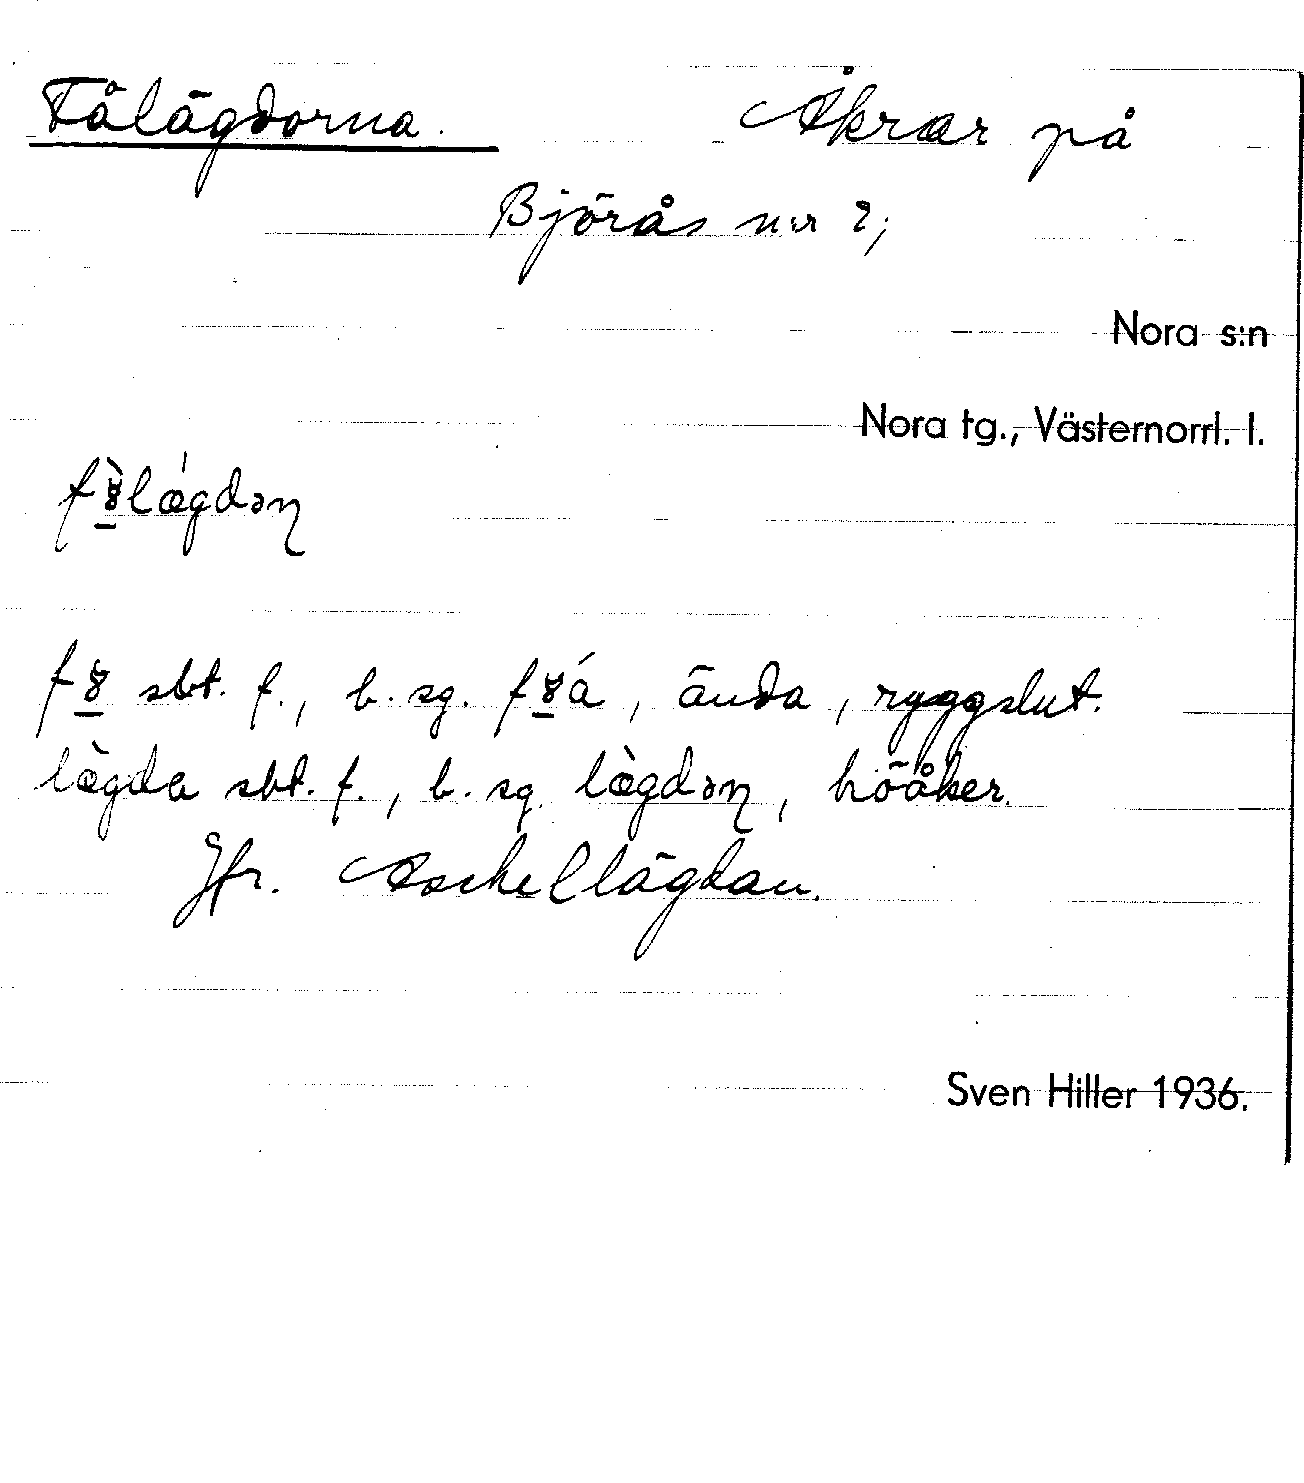 Fålägdorna. Åkrar på
Björås n:r 2;
Nora s:n
Nora tg., Västernorrl. l.
sbt. f., b. sg. , ända, ryggslut.
lægda sbt. f., b. sg. lægdən, höåker.
Jfr. Aschellägdan.
Sven Hiller 1936.